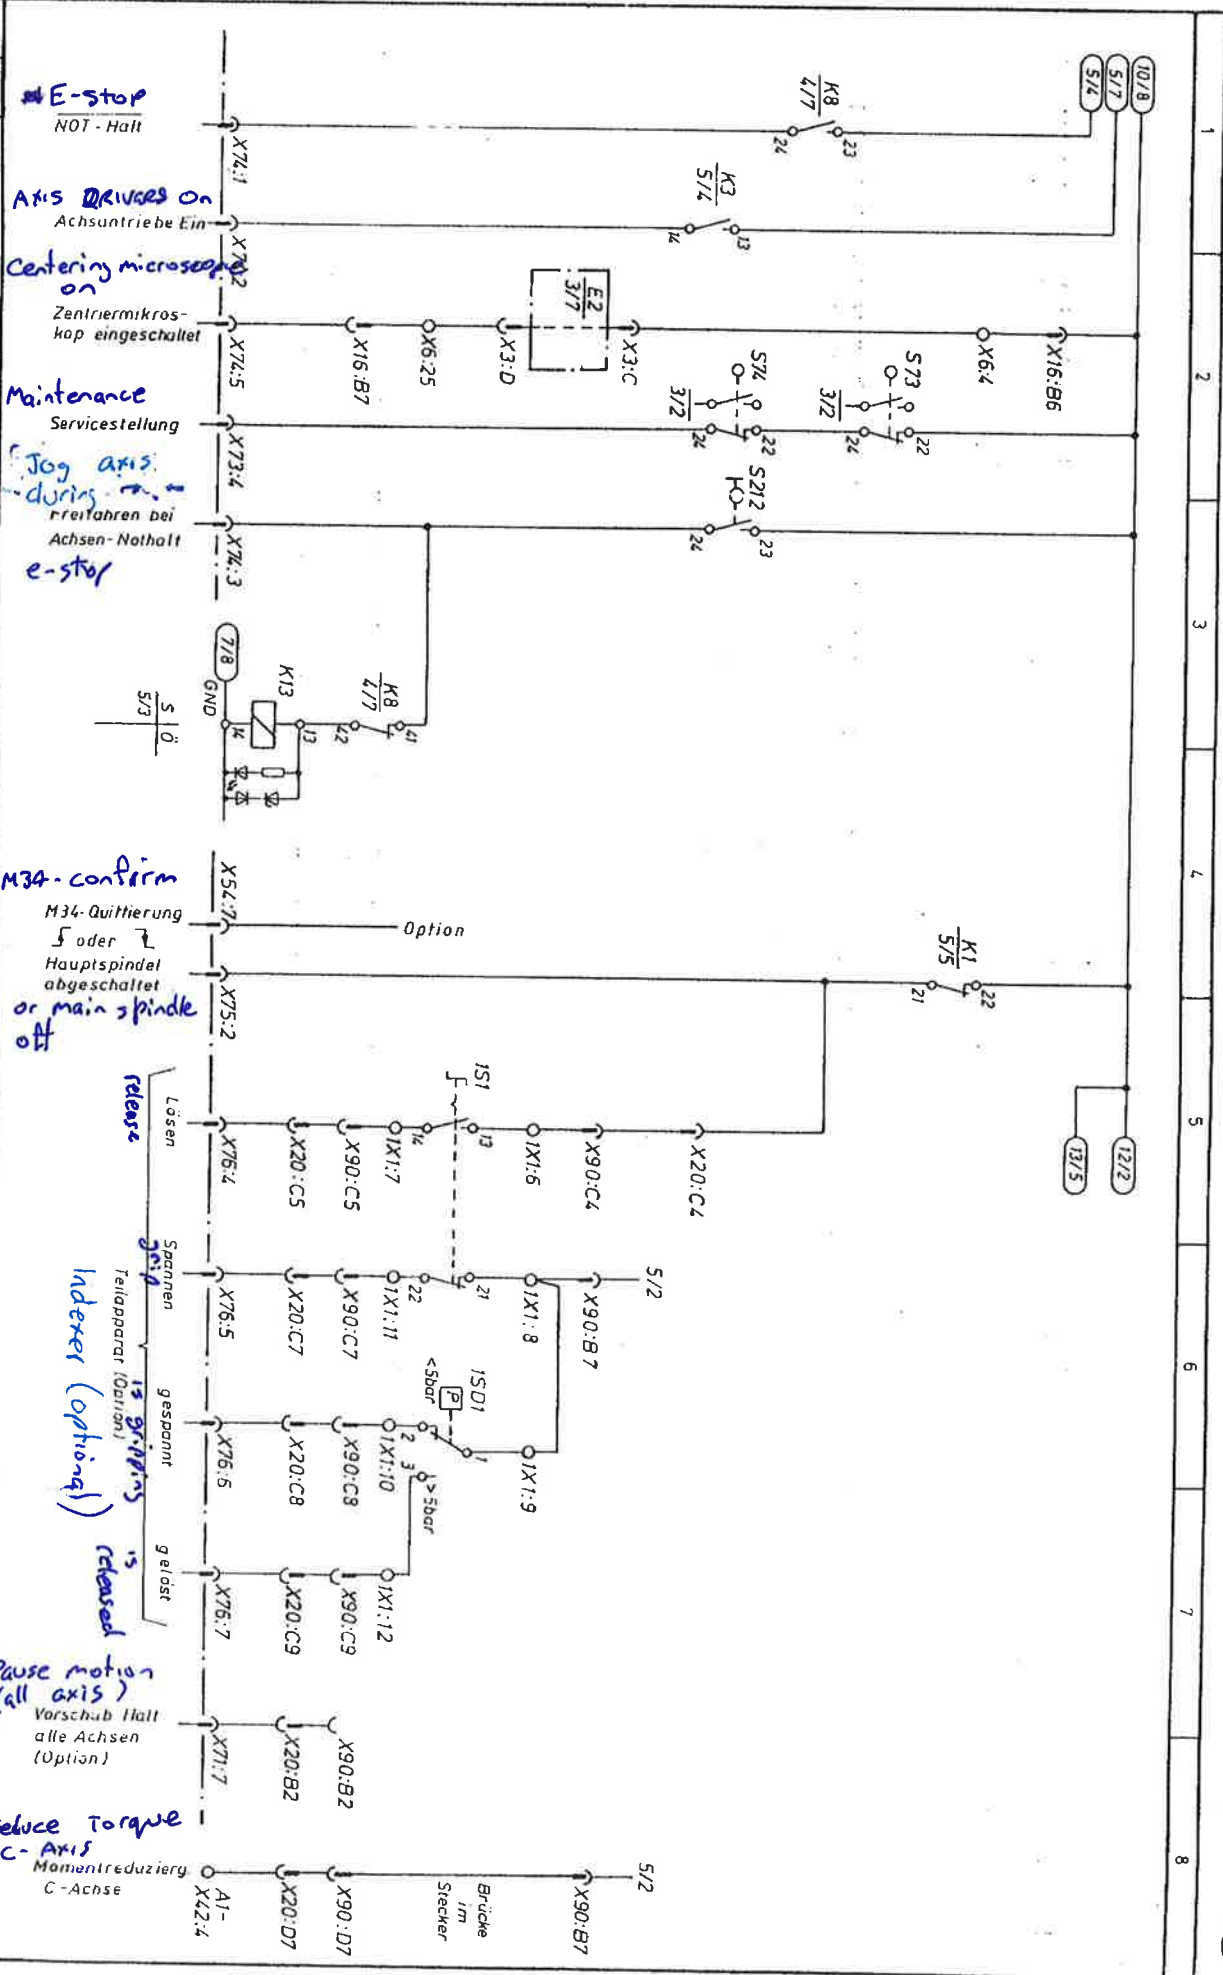 1
2
3
4
5
6
7
8
10/8
5/7
5/4
K8
4/7
23
24
E-stop
NOT - Halt
X74:1
K3
5/4
13
14
Axis DRIVERS On
Achsantriebe Ein
X74:2
Centering microscope
on
Zentriermikros-
kop eingeschaltet
X74:5
X16:B7
X6:25
X3:D
E2
3/7
X3:C
X6:4
X16:B6
Maintenance
Servicestellung
X73:4
S74
3/2
22
24
S73
3/2
22
24
Jog axis
during
Freifahren bei
Achsen-Nothalt
e-stop
X74:3
S212
23
24
7/8
GND
S Ö
5/3
K13
14
13
K8
4/7
42
41
M34-confirm
M34-Quittierung
oder
Hauptspindel
abgeschaltet
or main spindle
off
X54:7
Option
X75:2
K1
5/5
21
22
12/2
13/5
release
Lösen
X76:4
X20:C5
X90:C5
1X1:7
1S1
14
13
1X1:6
X90:C4
X20:C4
grip
Spannen
X76:5
X20:C7
X90:C7
1X1:11
22
21
1X1:8
X90:B7
5/2
Teilapparat (Option)
Indexer (optional)
is gripping
gespannt
X76:6
X20:C8
X90:C8
1X1:10
<5bar
1SD1
P
2
1
3
>5bar
1X1:9
is
released
gelöst
X76:7
X20:C9
X90:C9
1X1:12
Pause motion
(all axis)
Vorschub Halt
alle Achsen
(Option)
X71:7
X20:B2
X90:B2
Reduce Torque
C-Axis
Momentreduzierg
C-Achse
A1-
X42:4
X20:D7
X90:D7
Brücke
im
Stecker
X90:B7
5/2